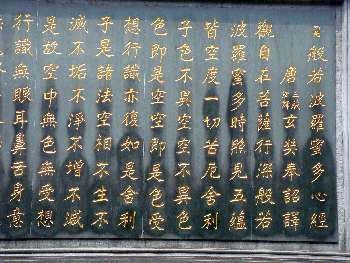 般若波羅蜜多心經
唐三藏法師玄奘奉詔譯
觀自在菩薩行深般若
波羅蜜多時照見五蘊
皆空度一切苦厄舍利
子色不異空空不異色
色即是空空即是色受
想行識亦復如是舍利
子是諸法空相不生不
滅不垢不淨不增不減
是故空中無色無受想
行識無眼耳鼻舌身意